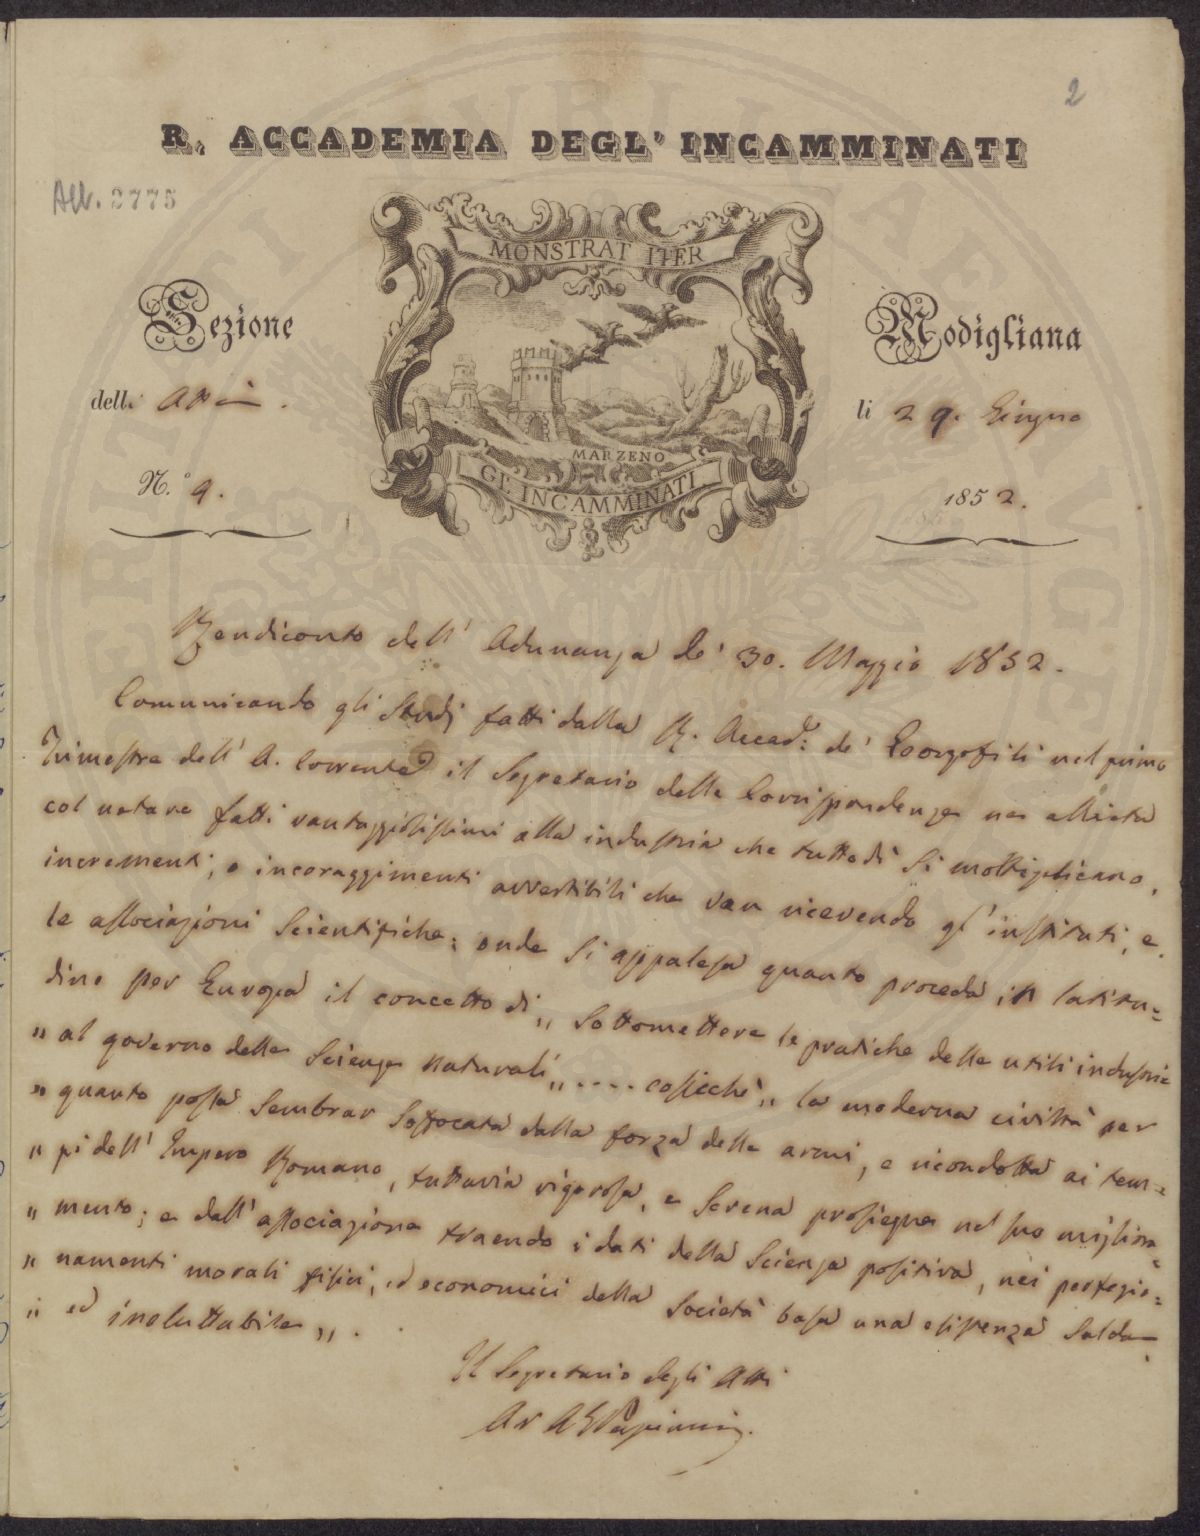 2
R. ACCADEMIA DEGL' INCAMMINATI
All. 2775
MONSTRAT ITER
Sezione
Modigliana
delli Atti.
li 29. Giugno
MARZENO
GL' INCAMMINATI
N.° 9.
1852.
Rendiconto dell' Adunanza de' 30. Maggio 1852.
Comunicando gli Studj fatti dalla R. Accad.: de' Georgofili nel primo
Trimestre dell' A. Corrente il Segretario delle Corrispondenze ne allieta
col notare fatti vantaggiosissimi alla industria che tuttodì si moltiplicano,
incrementi, e incoraggimenti avvertibili che van ricevendo gl' instituti, e
le associazioni Scientifiche: onde si appalesa quanto proceda in latitu=
dine per Europa il concetto di „ Sottomettere le pratiche delle utili industrie
„ al governo delle Scienze naturali „ .... cosicchè „ la moderna civiltà per
„ quanto possa sembrar soffocata dalla forza delle armi, e ricondotta ai tem=
„ pi dell' Impero Romano, tuttavia vigorosa, e Serena prosiegue nel suo migliora=
„ mento; e dall' associazione traendo i dati della Scienza positiva, nei perfezio=
„ namenti morali fisici, ed economici della Società basa una esistenza salda
„ ed ineluttabile „.
Il Segretario degli Atti